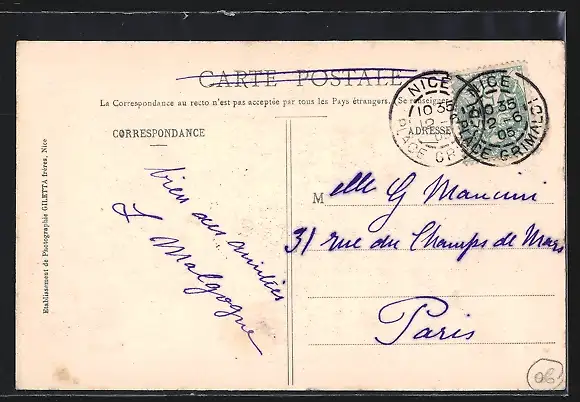 CARTE POSTALE
La Correspondance au recto n'est pas acceptée par tous les Pays étrangers. (Se renseigner
CORRESPONDANCE
ADRESSE
NICE
10 35
12 - 6
05
PLACE GRIMALDI
NICE
10 35
12 - 6
05
PLACE GRIMALDI
bien des amitiés
Malgogne
Melle G Mancini
31 rue du Champs de Mars
Paris
Etablissement de Photographie GILETTA frères, Nice
06